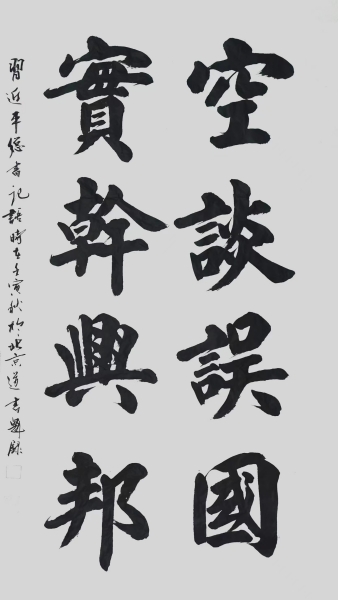 空談誤國
實幹興邦
習近平總書記語時在壬寅秋於北京道